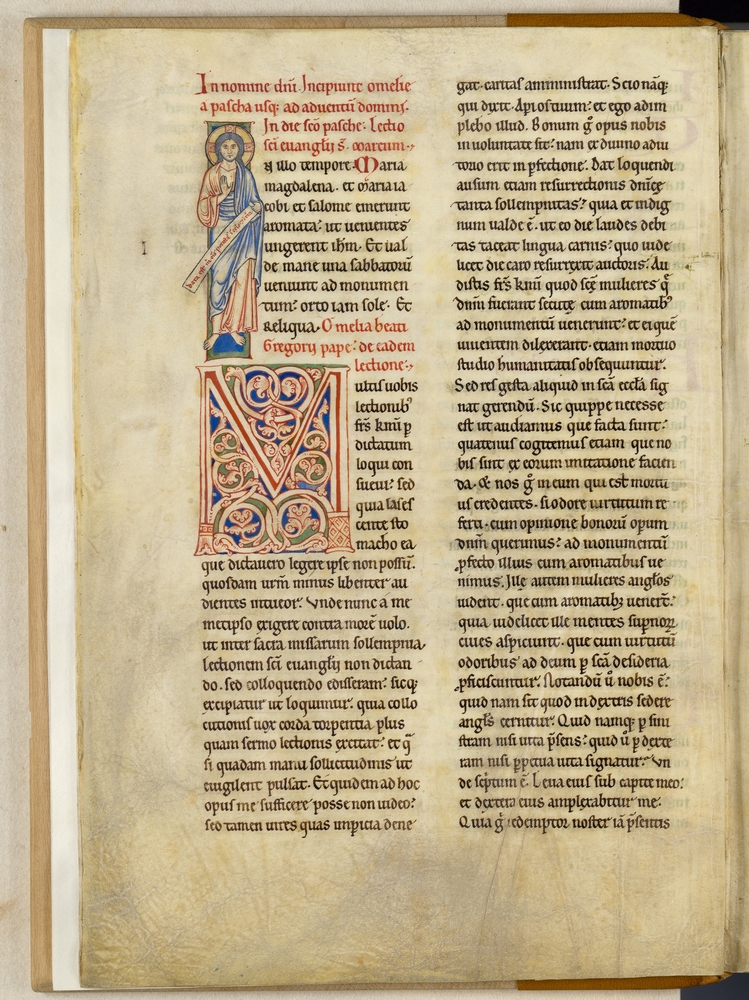 In nomine dñi. Incipiunt omelie
a pascha usq; ad aduentũ domini.
In die sc̃o pasche. Lectio
sc̃i euangłij s̃. marcum.
IN illo tempore. Maria
magdalena. et maria ia
cobi et salome emerunt
aromata. ut uenientes
ungerent ihm̃. Et ual
de mane una sabbatorũ
ueniunt ad monumen
tum. orto iam sole. Et
reliqua. Omelia beati
Gregorij pape. de eadem
lectione.
Data est m̃ omnis potestas
Multis uobis
lectionibꝰ
fr̃s km̃i ꝑ
dictatum
loqui con
sueui. sed
quia lasces
cente sto
macho ea
que dictauero legere ipse non possũ.
quosdam ur̃m minus libenter au
dientes intueor. Vnde nunc a me
metipso exigere contra morẽ uolo.
ut inter sacra missarum sollempnia.
lectionem sc̃i euangłij non dictan
do. sed colloquendo edisseram. sicq;
excipiatur ut loquimur. quia collo
cutionis uox corda torpentia plus
quam sermo lectionis excitat. et q̃
si quadam manu sollicitudinis ut
euigilent pulsat. Et quidem ad hoc
opus me sufficere posse non uideo.
sed tamen uires quas impicia dene
gat. caritas amministrat. Scio nãq;
qui dixit. Aꝑi os tuum. et ego adim
plebo illud. Bonum g̃ opus nobis
in uoluntate sit. nam ex diuino adiu
torio erit in ꝑfectione. Dat loquendi
ausum etiam resurrectionis dñice
tanta sollempnitas. quia et indig
num ualde ẽ. ut eo die laudes debi
tas taceat lingua carnis. quo uide
licet die caro resurrexit auctoris. Au
distis fr̃s km̃i quod sc̃e mulieres q̃
dñm fuerant secute cum aromatibꝰ
ad monumentũ uenerunt. et ei quẽ
uiuentem dilexerant. etiam mortuo
studio humanitatis obsequuntur.
Sed res gesta aliquid in sc̃a ecc̃la sig
nat gerendũ. Sic quippe necesse
est ut audiamus que facta sunt.
quatenus cogitemus etiam que no
bis sint ex eorum imitatione facien
da. Et nos g̃ in eum qui est mortu
us credentes. si odore uirtutum re
ferti. cum opinione bonorũ opum
dñm querimus. ad monumentũ
ꝓfecto illius cum aromatibus ue
nimus. Ille autem mulieres angłos
uident. que cum aromatibꝫ uener̃t.
quia uidelicet ille mentes suꝑnoꝝ
ciues aspiciunt. que cum uirtutũ
odoribus ad deum ꝑ sc̃a desideria
ꝓficiscuntur. Notandũ ũ nobis ẽ.
quid nam sit quod in dextris sedere
angłs cernitur. Quid namq; ꝑ sini
stram nisi uita p̃sens. quid ũ ꝑ dexte
ram nisi ꝑpetua uita signatur. Vn
de sc̃ptum ẽ. Leua eius sub capite meo.
et dextera eius amplexabitur me.
Quia g̃ redemptor noster iã p̃sentis